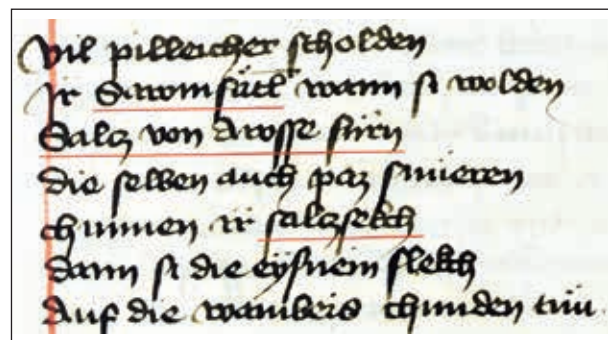 Vil pilleicher scholden
Ir Sawmsätl wann si wolden
Salcz von Awsse fürn
die selben auch paz smieren
chunnen ir salczsekch
dann si die eysnein flekch
Auf die wambeis chunden tün